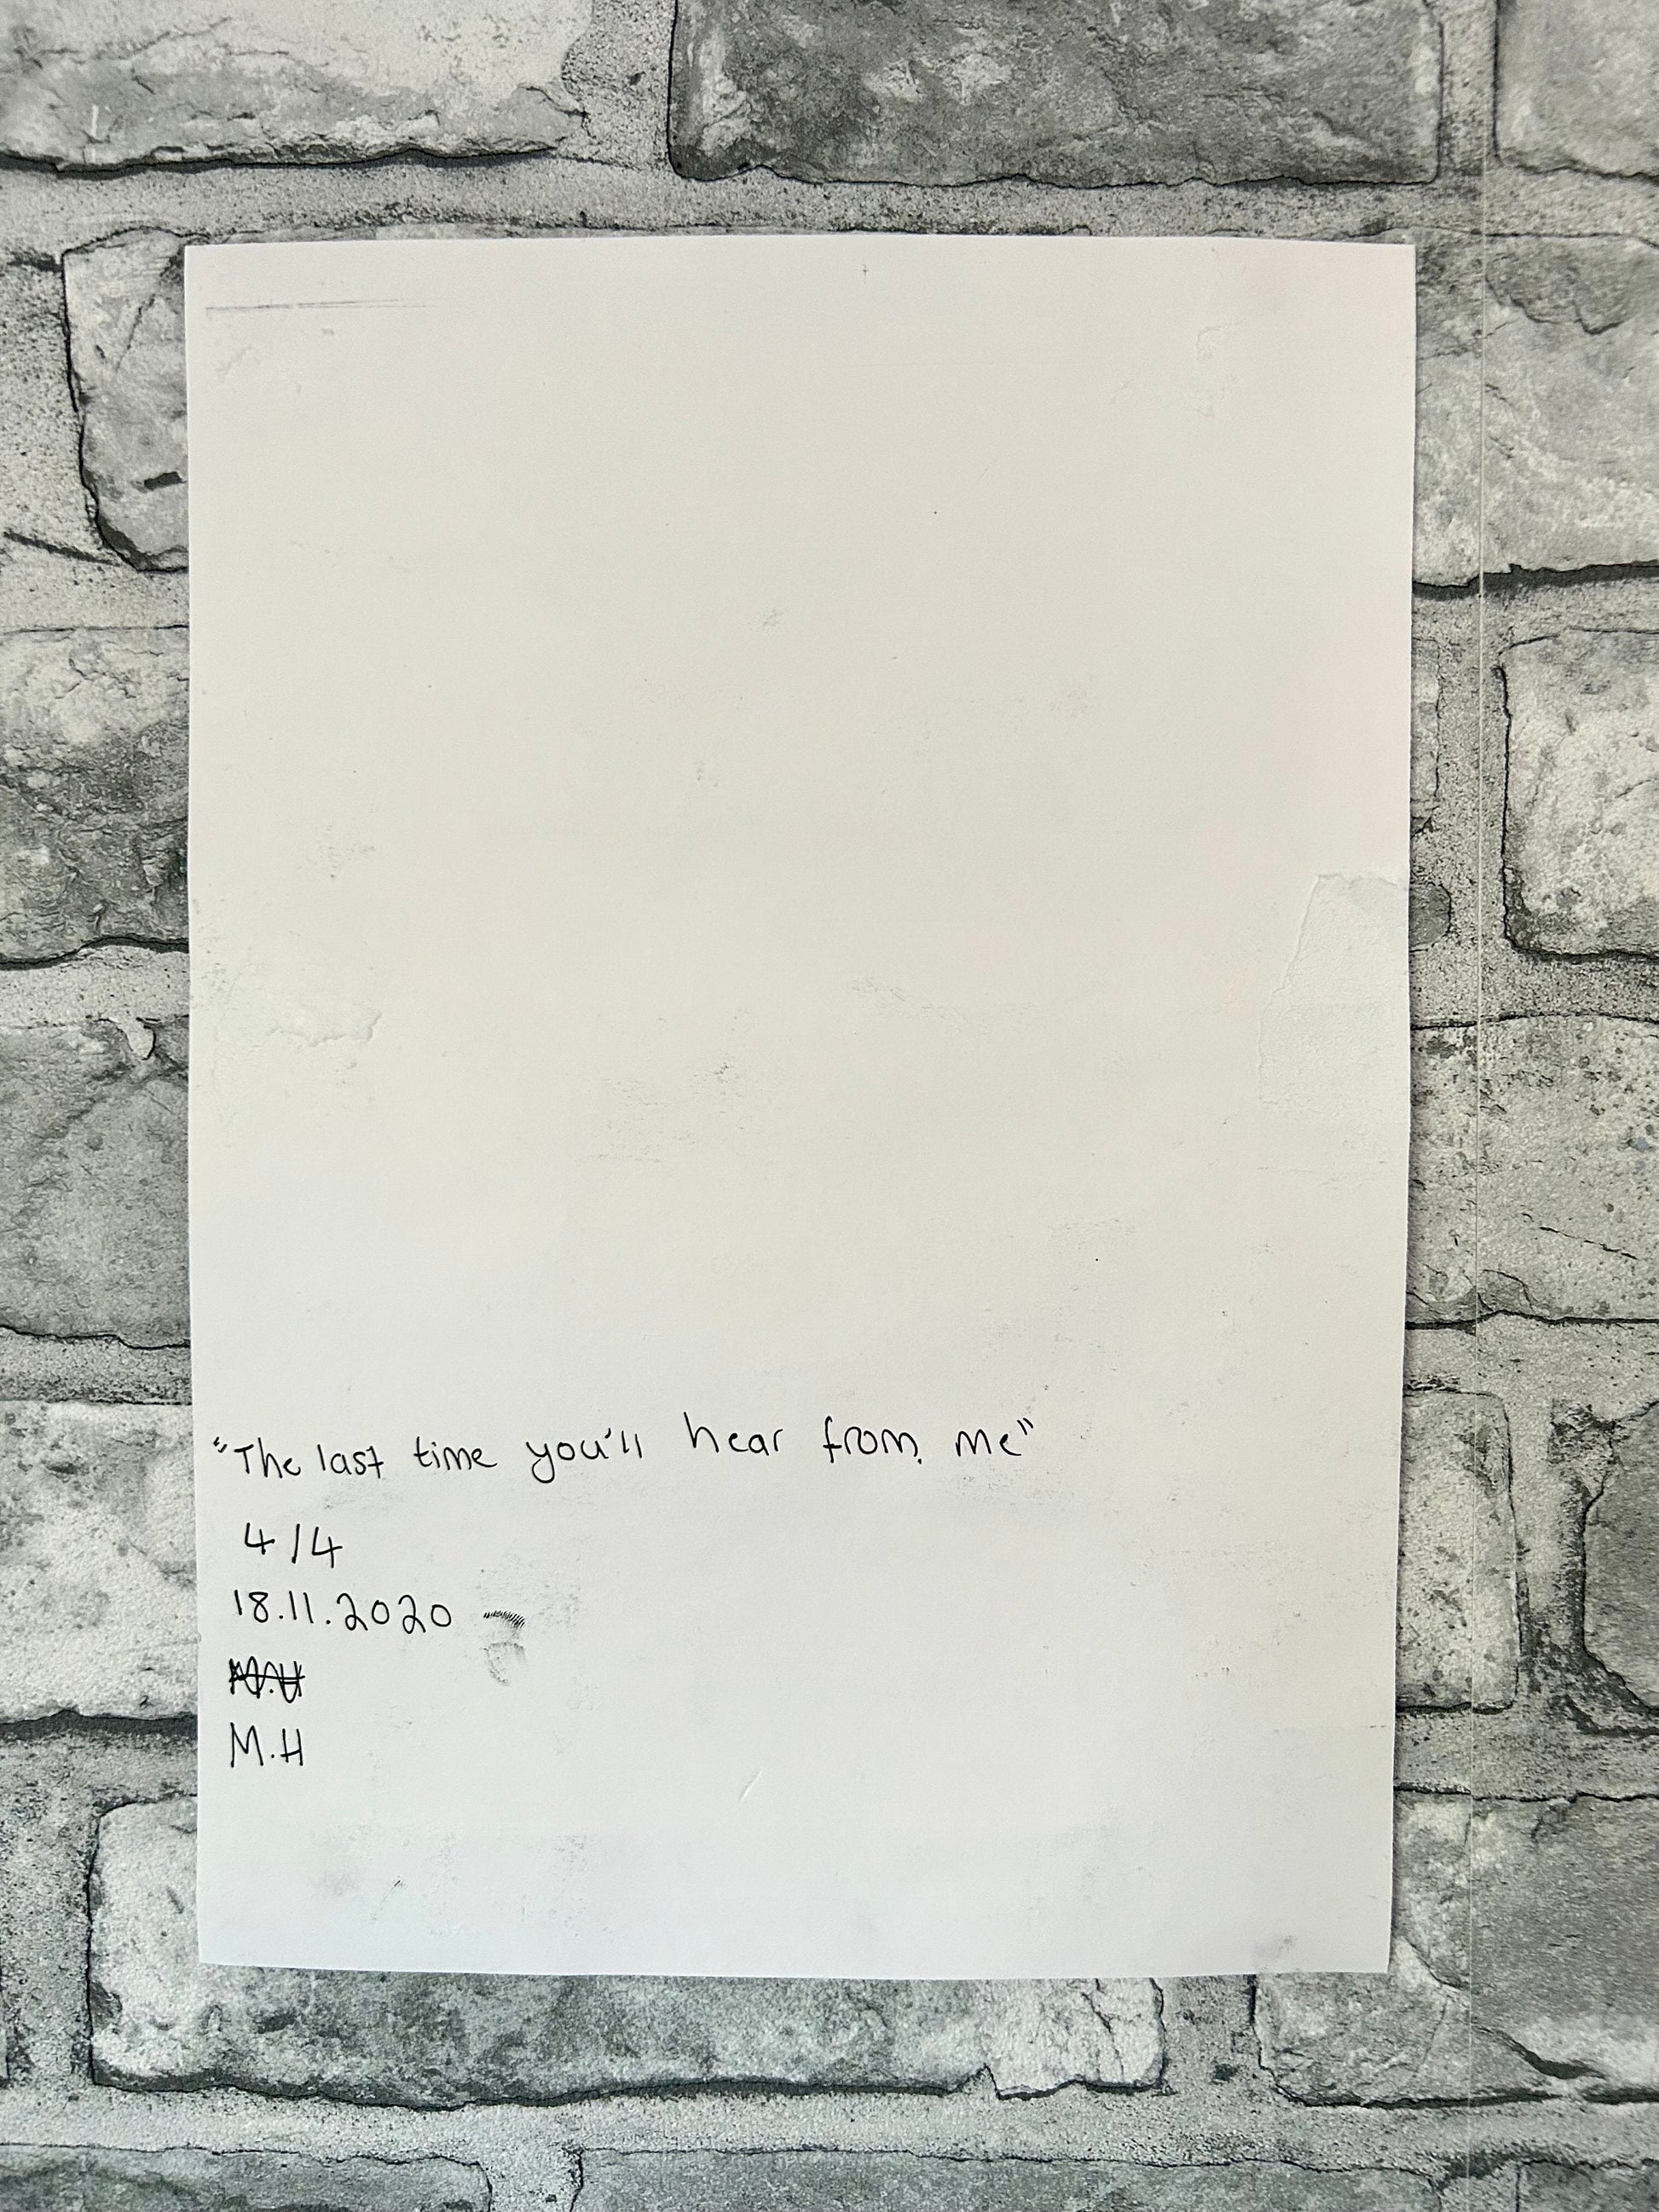 "The last time you'll hear from me"
4/4
18.11.2020
M.H